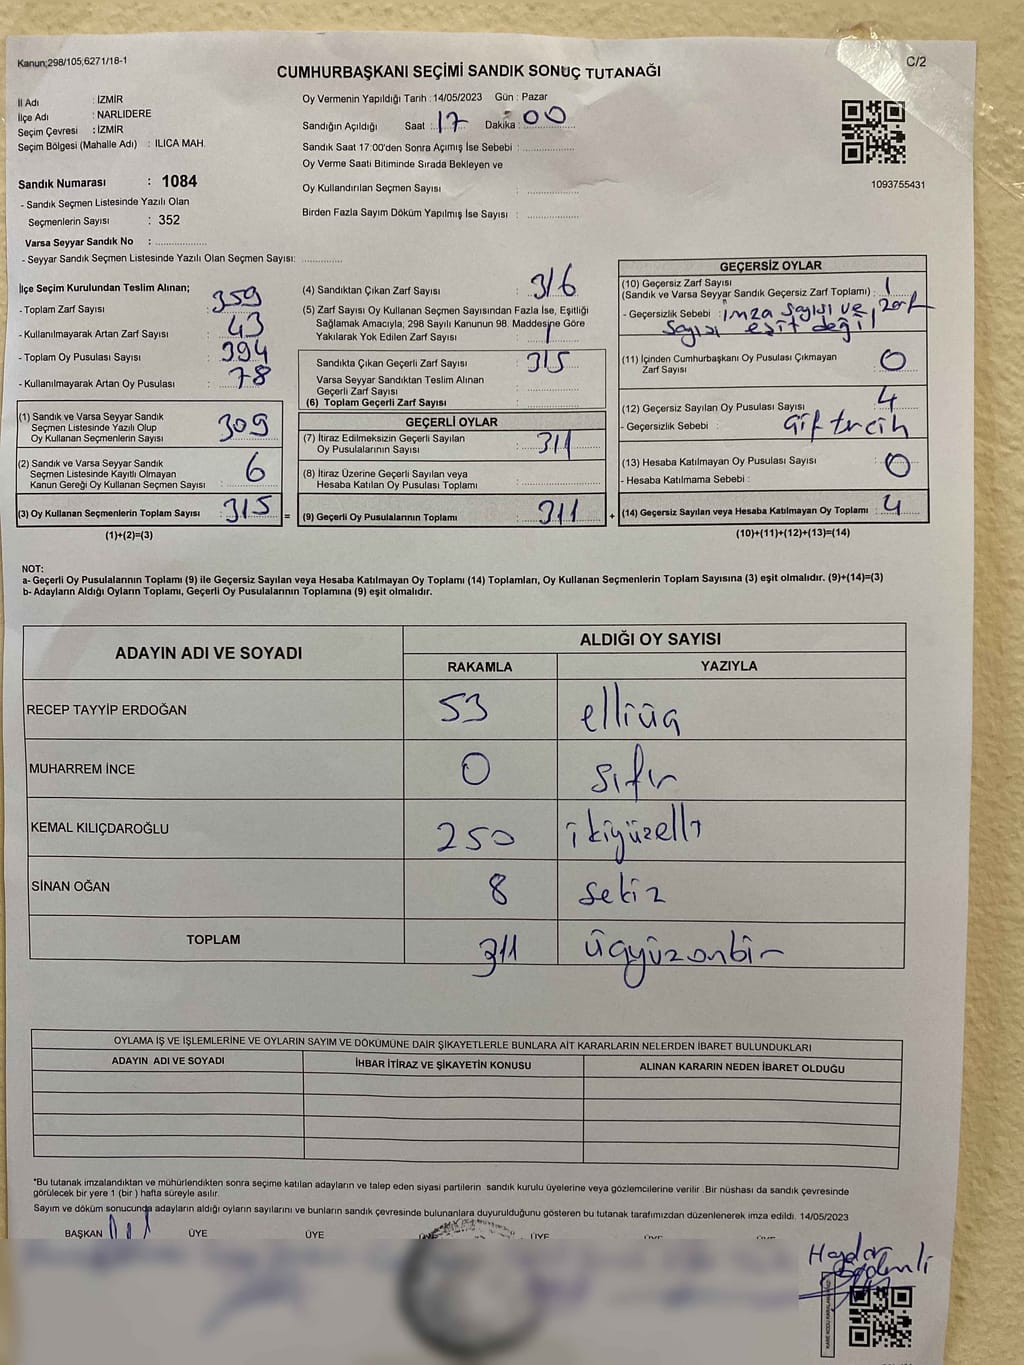 Kanun;298/105,6271/18-1
C/2
CUMHURBAŞKANI SEÇİMİ SANDIK SONUÇ TUTANAĞI
İl Adı : İZMİR
İlçe Adı : NARLIDERE
Seçim Çevresi : İZMİR
Seçim Bölgesi (Mahalle Adı) : ILICA MAH.
Sandık Numarası : 1084
- Sandık Seçmen Listesinde Yazılı Olan
Seçmenlerin Sayısı : 352
Varsa Seyyar Sandık No : ....................
- Seyyar Sandık Seçmen Listesinde Yazılı Olan Seçmen Sayısı: ...............
Oy Vermenin Yapıldığı Tarih : 14/05/2023 Gün : Pazar
Sandığın Açıldığı Saat : 17 Dakika : 00
Sandık Saat 17:00'den Sonra Açımış İse Sebebi : ....................
Oy Verme Saati Bitiminde Sırada Bekleyen ve
Oy Kullandırılan Seçmen Sayısı : ....................
Birden Fazla Sayım Döküm Yapılmış İse Sayısı : ....................
1093755431
İlçe Seçim Kurulundan Teslim Alınan;
- Toplam Zarf Sayısı : 359
- Kullanılmayarak Artan Zarf Sayısı : 43
- Toplam Oy Pusulası Sayısı : 394
- Kullanılmayarak Artan Oy Pusulası : 78
(1) Sandık ve Varsa Seyyar Sandık
Seçmen Listesinde Yazılı Olup
Oy Kullanan Seçmenlerin Sayısı : 309
(2) Sandık ve Varsa Seyyar Sandık
Seçmen Listesinde Kayıtlı Olmayan
Kanun Gereği Oy Kullanan Seçmen Sayısı : 6
(3) Oy Kullanan Seçmenlerin Toplam Sayısı : 315 =
(1)+(2)=(3)
(4) Sandıktan Çıkan Zarf Sayısı : 316
(5) Zarf Sayısı Oy Kullanan Seçmen Sayısından Fazla İse, Eşitliği
Sağlamak Amacıyla; 298 Sayılı Kanunun 98. Maddesine Göre
Yakılarak Yok Edilen Zarf Sayısı : 1
Sandıkta Çıkan Geçerli Zarf Sayısı : 315
Varsa Seyyar Sandıktan Teslim Alınan
Geçerli Zarf Sayısı : ....................
(6) Toplam Geçerli Zarf Sayısı : ....................
GEÇERLİ OYLAR
(7) İtiraz Edilmeksizin Geçerli Sayılan
Oy Pusulalarının Sayısı : 311
(8) İtiraz Üzerine Geçerli Sayılan veya
Hesaba Katılan Oy Pusulası Toplamı : ....................
(9) Geçerli Oy Pusulalarının Toplamı : 311 +
GEÇERSİZ OYLAR
(10) Geçersiz Zarf Sayısı
(Sandık ve Varsa Seyyar Sandık Geçersiz Zarf Toplamı) : 1
- Geçersizlik Sebebi : imza sayısı ve zarf
sayısı eşit değil
(11) İçinden Cumhurbaşkanı Oy Pusulası Çıkmayan
Zarf Sayısı : 0
(12) Geçersiz Sayılan Oy Pusulası Sayısı : 4
- Geçersizlik Sebebi : Çift tercih
(13) Hesaba Katılmayan Oy Pusulası Sayısı : 0
- Hesaba Katılmama Sebebi :
(14) Geçersiz Sayılan veya Hesaba Katılmayan Oy Toplamı : 4
(10)+(11)+(12)+(13)=(14)
NOT:
a- Geçerli Oy Pusulalarının Toplamı (9) ile Geçersiz Sayılan veya Hesaba Katılmayan Oy Toplamı (14) Toplamları, Oy Kullanan Seçmenlerin Toplam Sayısına (3) eşit olmalıdır. (9)+(14)=(3)
b- Adayların Aldığı Oyların Toplamı, Geçerli Oy Pusulalarının Toplamına (9) eşit olmalıdır.
ADAYIN ADI VE SOYADI ALDIĞI OY SAYISI
RAKAMLA YAZIYLA
RECEP TAYYİP ERDOĞAN 53 elliüç
MUHARREM İNCE 0 sıfır
KEMAL KILIÇDAROĞLU 250 ikiyüzelli
SİNAN OĞAN 8 sekiz
TOPLAM 311 üçyüzonbir
OYLAMA İŞ VE İŞLEMLERİNE VE OYLARIN SAYIM VE DÖKÜMÜNE DAİR ŞİKAYETLERLE BUNLARA AİT KARARLARIN NELERDEN İBARET BULUNDUKLARI
ADAYIN ADI VE SOYADI İHBAR İTİRAZ VE ŞİKAYETİN KONUSU ALINAN KARARIN NEDEN İBARET OLDUĞU
*Bu tutanak imzalandıktan ve mühürlendikten sonra seçime katılan adayların ve talep eden siyasi partilerin sandık kurulu üyelerine veya gözlemcilerine verilir .Bir nüshası da sandık çevresinde
görülecek bir yere 1 (bir ) hafta süreyle asılır.
Sayım ve döküm sonucunda adayların aldığı oyların sayılarını ve bunların sandık çevresinde bulunanlara duyurulduğunu gösteren bu tutanak tarafımızdan düzenlenerek imza edildi. 14/05/2023
BAŞKAN ÜYE ÜYE ÜYE
Haydar